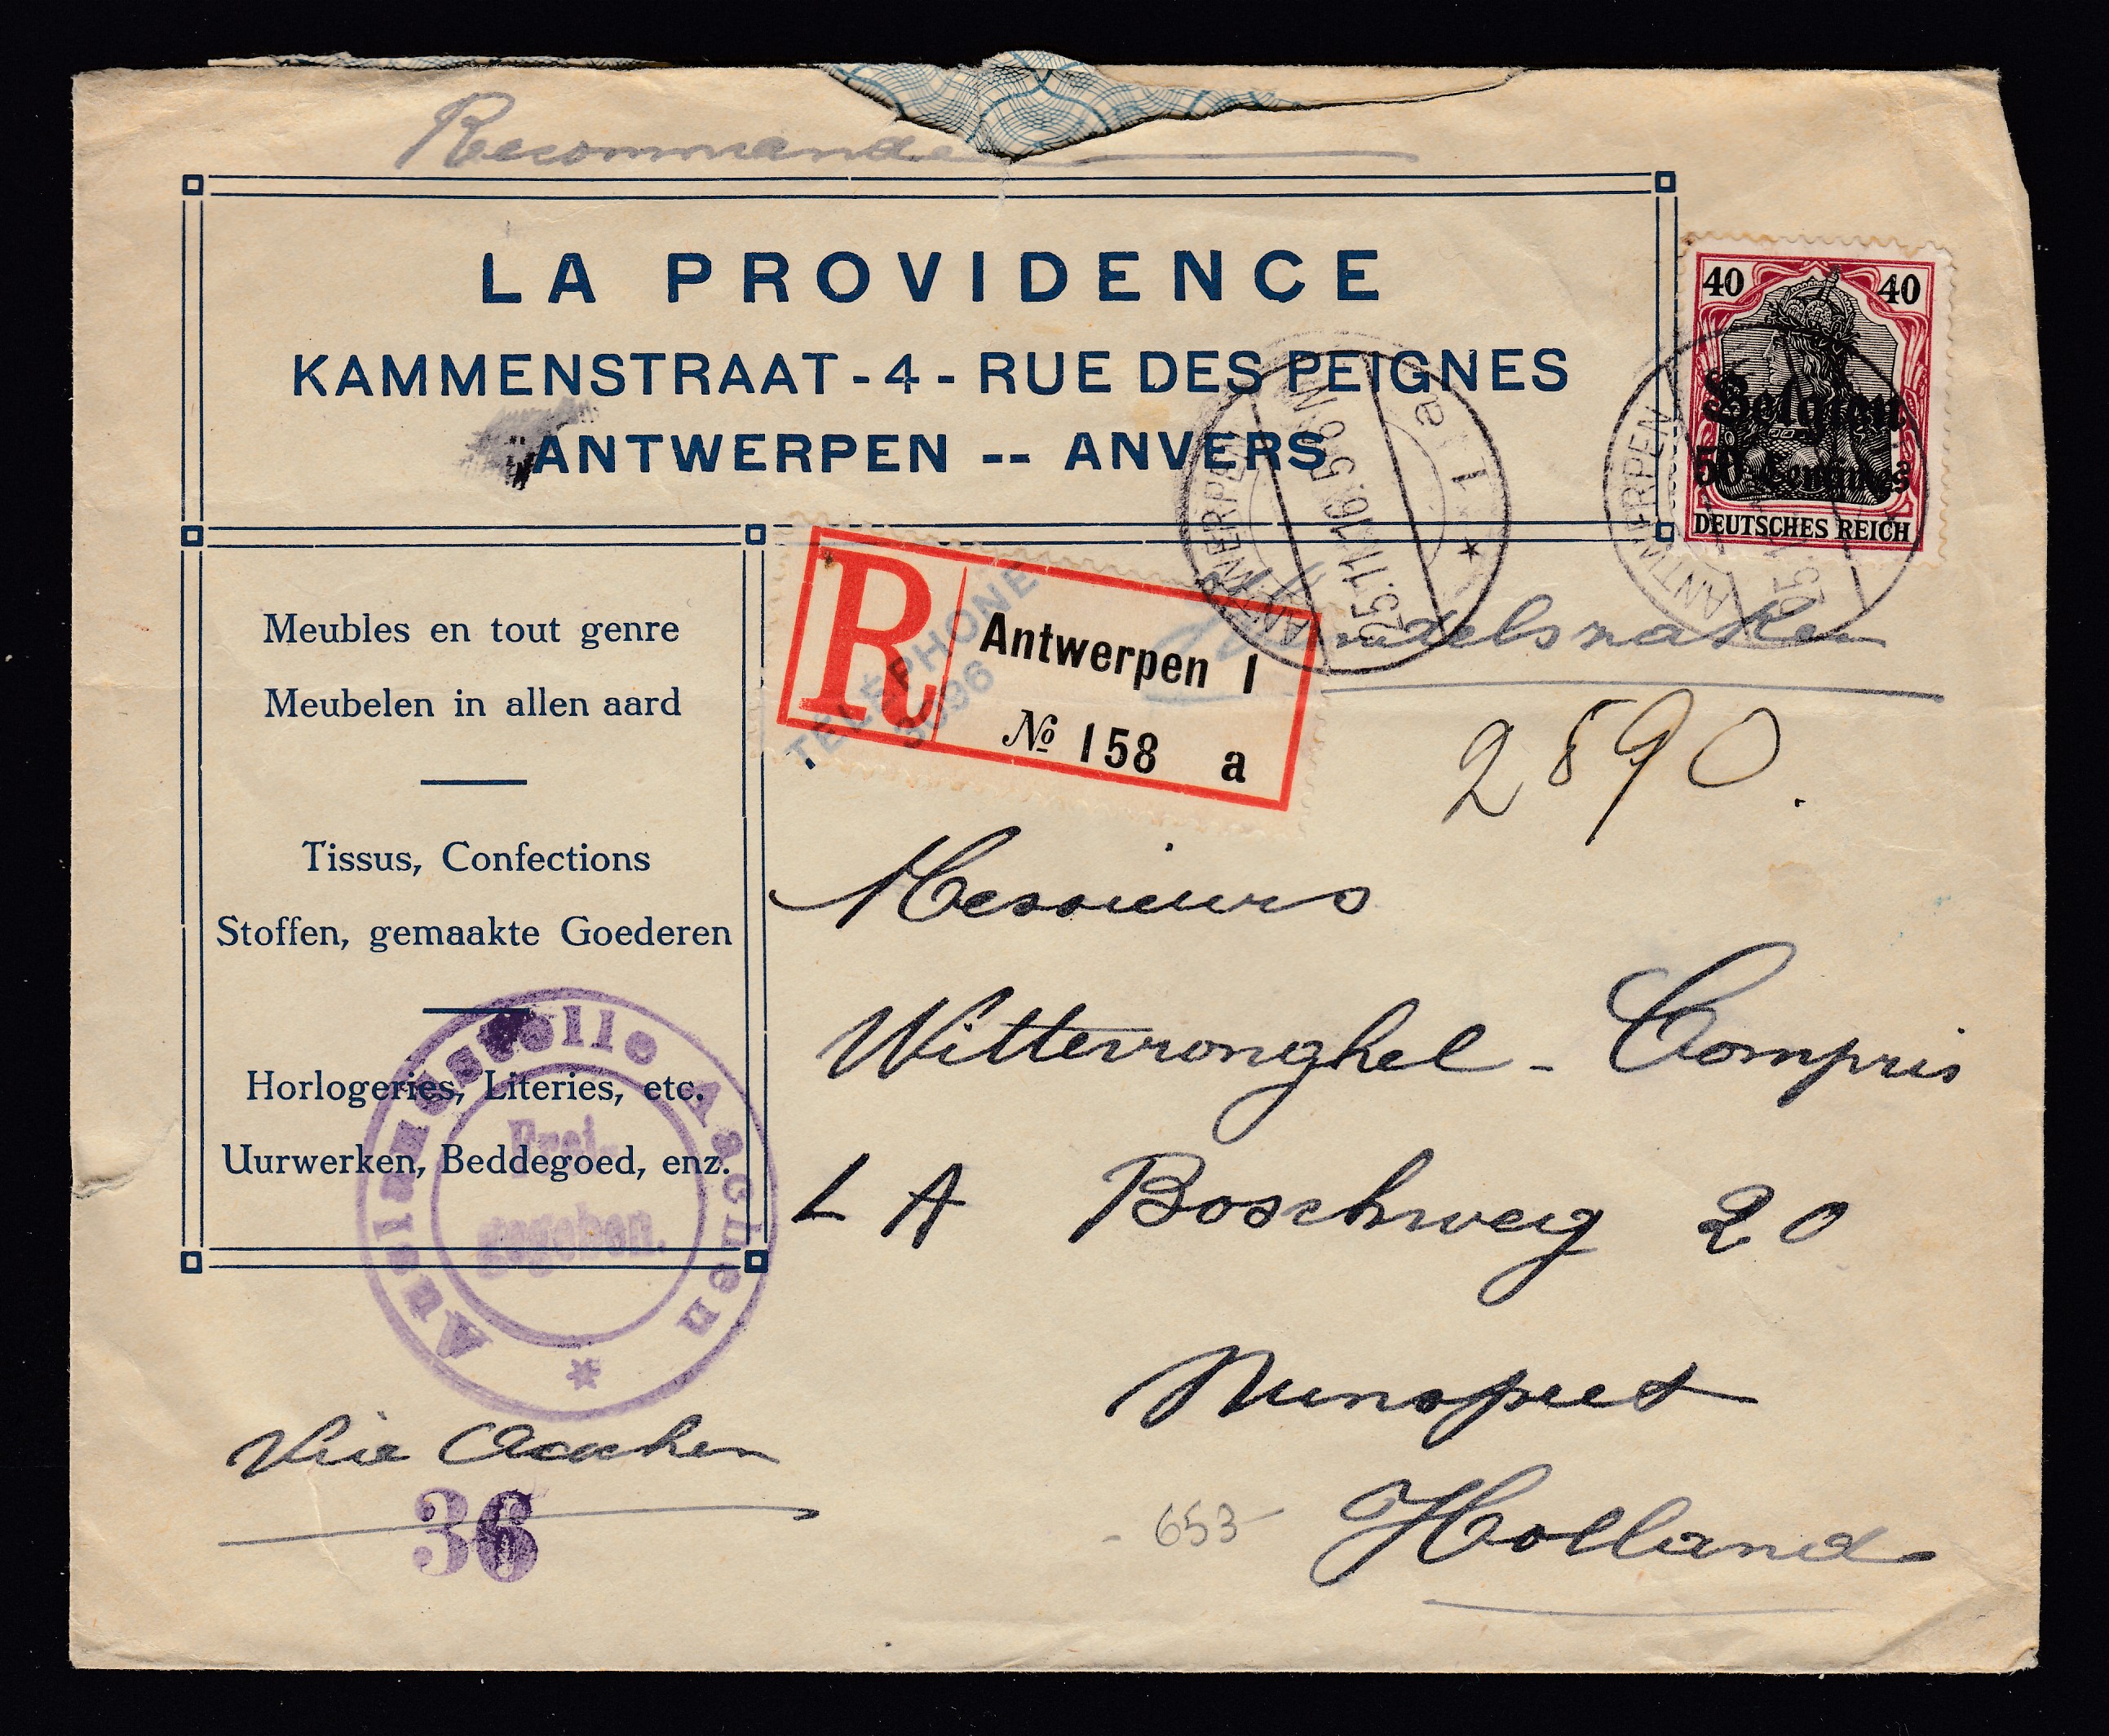 Recommandé
LA PROVIDENCE
KAMMENSTRAAT - 4 - RUE DES PEIGNES
ANTWERPEN -- ANVERS
40 40
Belgien
50 Centimes
DEUTSCHES REICH
ANTWERPEN
25.11.16.5-6 N
* 1 a
ANTWERPEN
25.
Meubles en tout genre
Meubelen in allen aard
Tissus, Confections
Stoffen, gemaakte Goederen
Horlogeries, Literies, etc.
Uurwerken, Beddegoed, enz.
R
Antwerpen 1
№ 158 a
TÉLÉPHONE
3636
Handelszaken
2890.
Messieurs
Wittevronghel - Compris
LA Boschweg 20
Nunspeet
Holland
Auslandsstelle Aachen
Frei-
gegeben.
*
Via Aachen
36
- 653 -